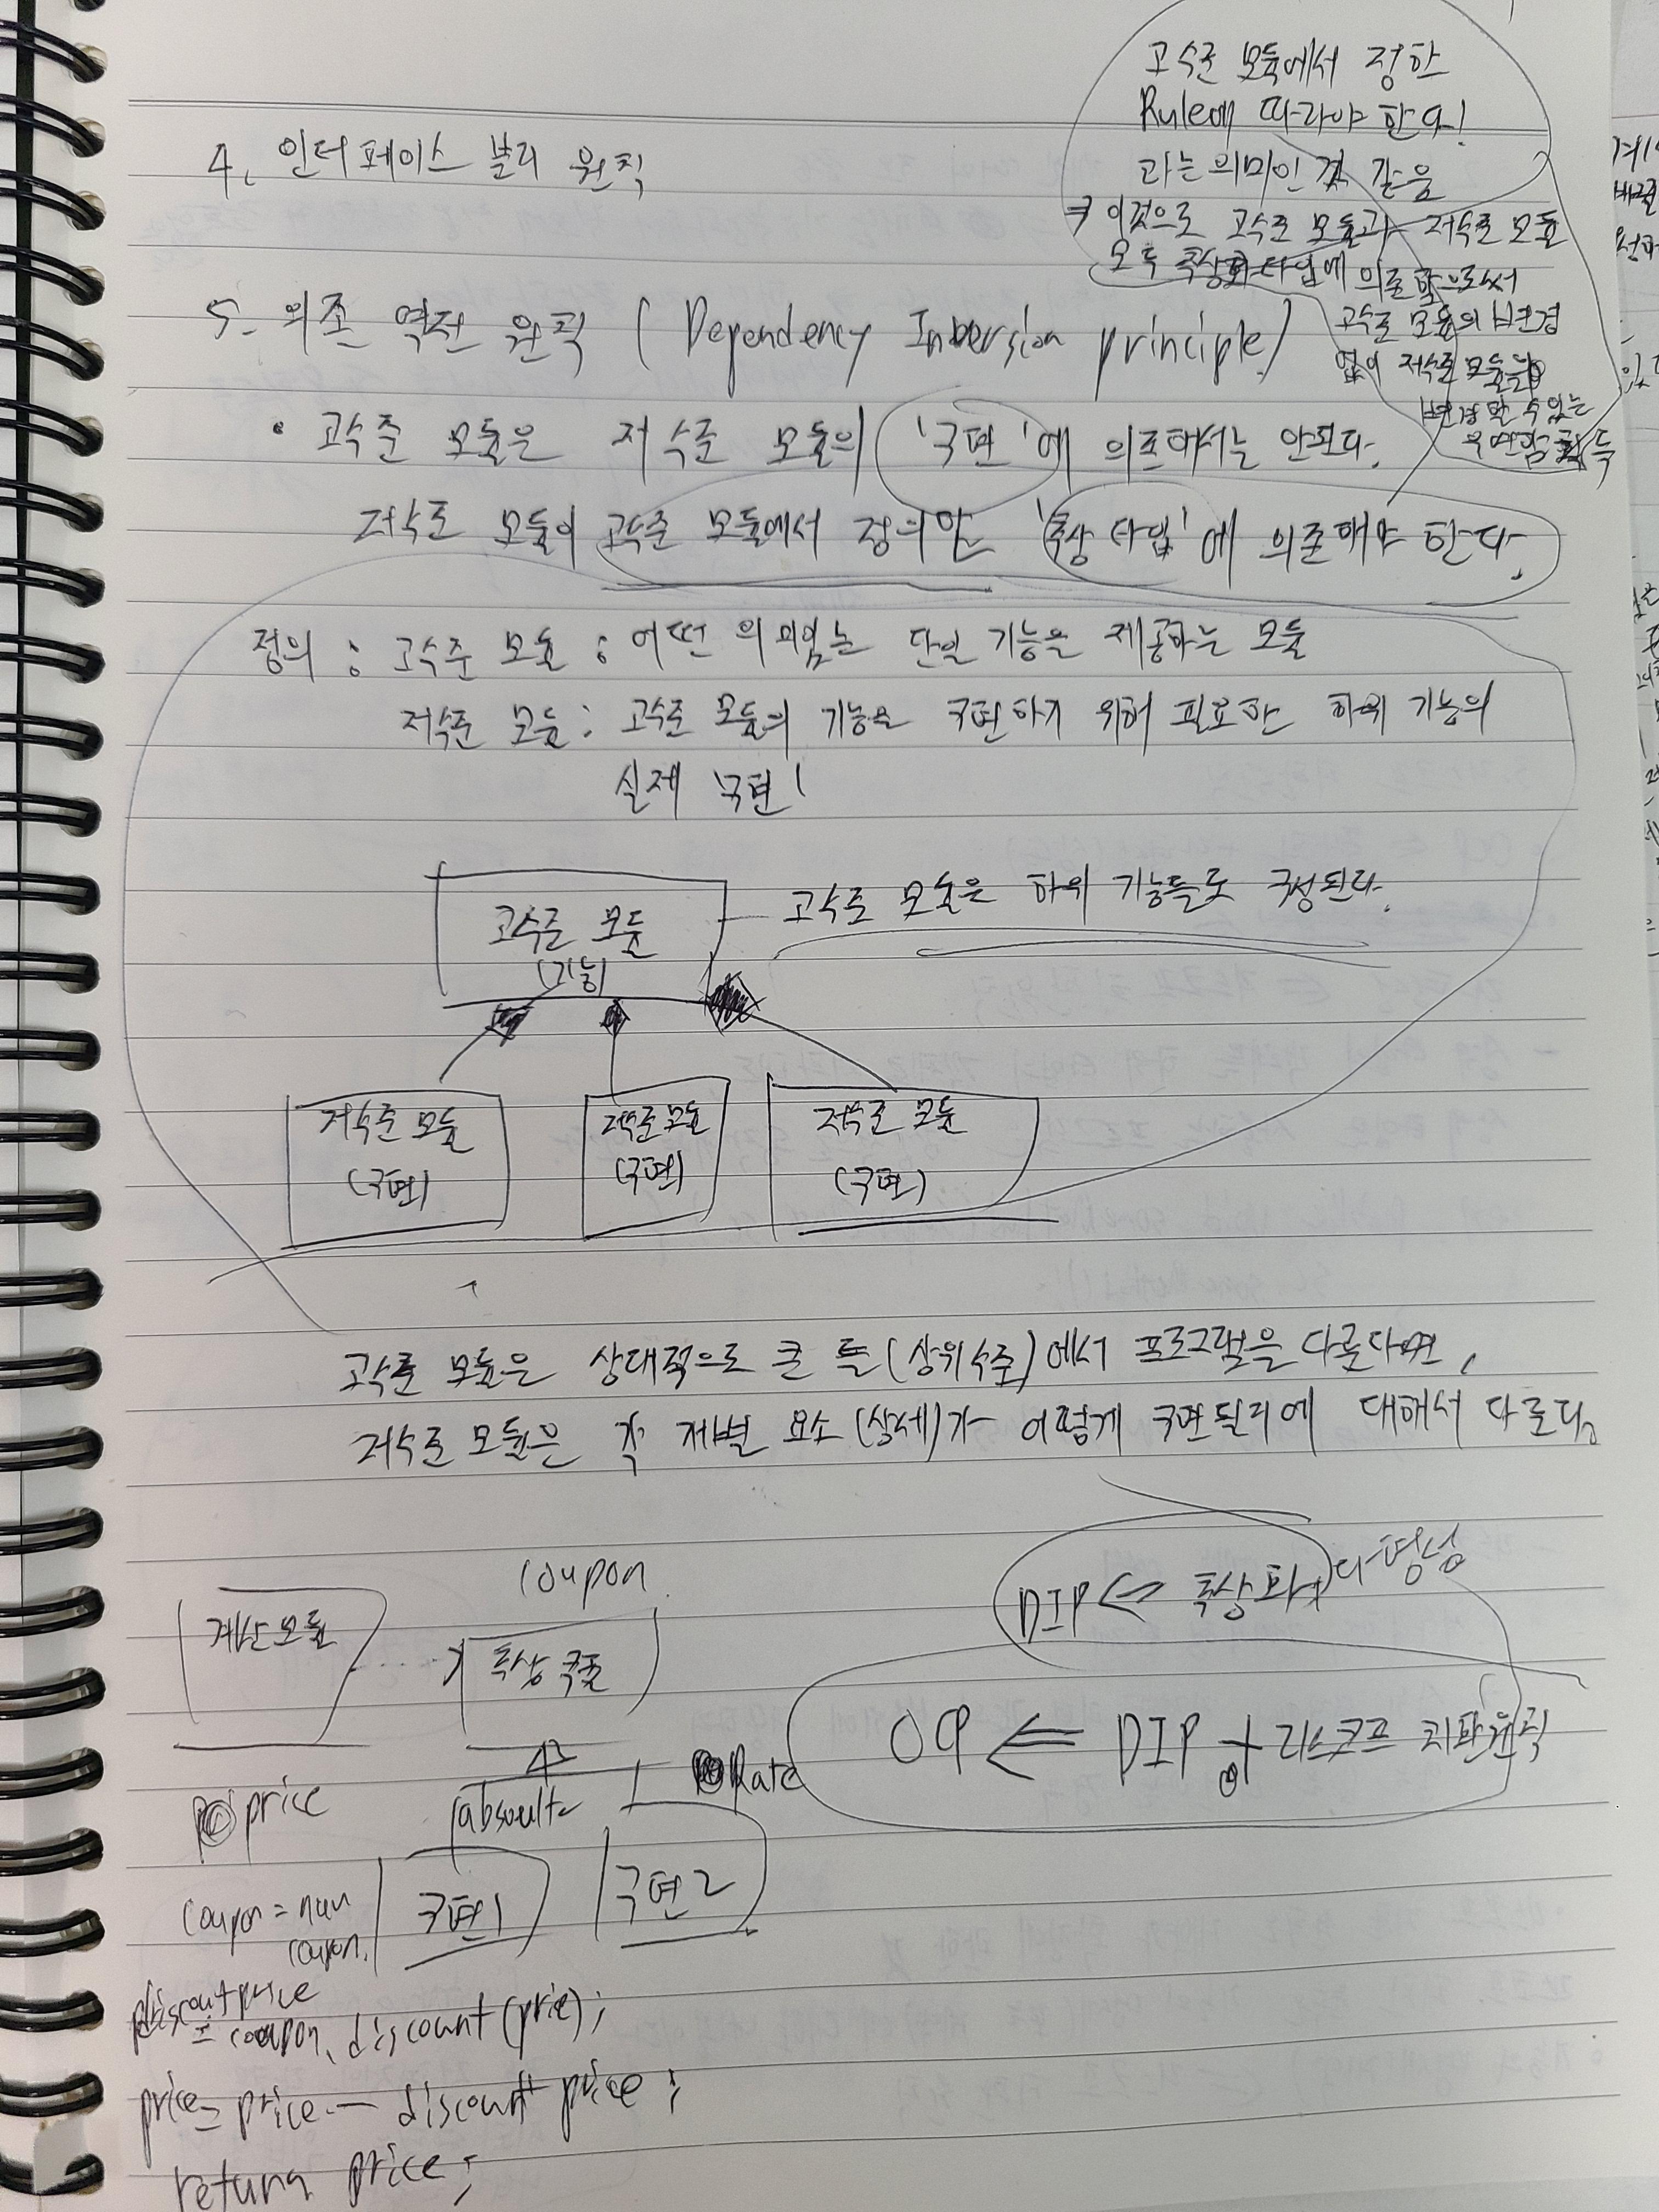 고수준 모듈에서 정한
Rule에 따라야 한다!
라는 의미인 것 같음
⇒ 이것으로 고수준 모듈과 저수준 모듈
모두 추상화 타입에 의존함으로써
고수준 모듈의 변경
없이 저수준 모듈을
변경할 수 있는
유연함 획득
4. 인터페이스 분리 원칙
5. 의존 역전 원칙 (Dependency Inbersion principle)
• 고수준 모듈은 저수준 모듈의 '구현'에 의존해서는 안된다.
저수준 모듈이 고수준 모듈에서 정의한 '추상 타입'에 의존해야 한다.
정의 : 고수준 모듈 : 어떤 의미있는 단일 기능을 제공하는 모듈
저수준 모듈 : 고수준 모듈의 기능을 구현하기 위해 필요한 하위 기능의
실제 '구현'
고수준 모듈
(기능)
고수준 모듈은 하위 기능들로 구성된다.
저수준 모듈
(구현)
저수준 모듈
(구현)
저수준 모듈
(구현)
고수준 모듈은 상대적으로 큰 틀(상위수준)에서 프로그램을 다룬다면,
저수준 모듈은 각 개별 요소(상세)가 어떻게 구현될지에 대해서 다룬다.
DIP <=> 추상화 다형성
OCP <= DIP + 리스코프 치환원칙
coupon
계산모듈
추상 쿠폰
price
absoulte
Rate
구현1
구현2
coupon =
coupon.
discount price
= coupon.discount(price);
price = price - discount price;
return price;